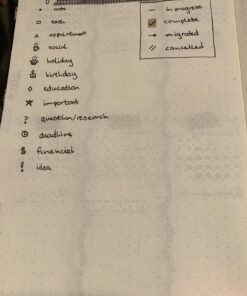 • note
□ task
△ appointment
social
holiday
birthday
◇ education
☆ important
? question/research
deadline
$ financial
! idea
– in progress
complete
→ migrated
// cancelled